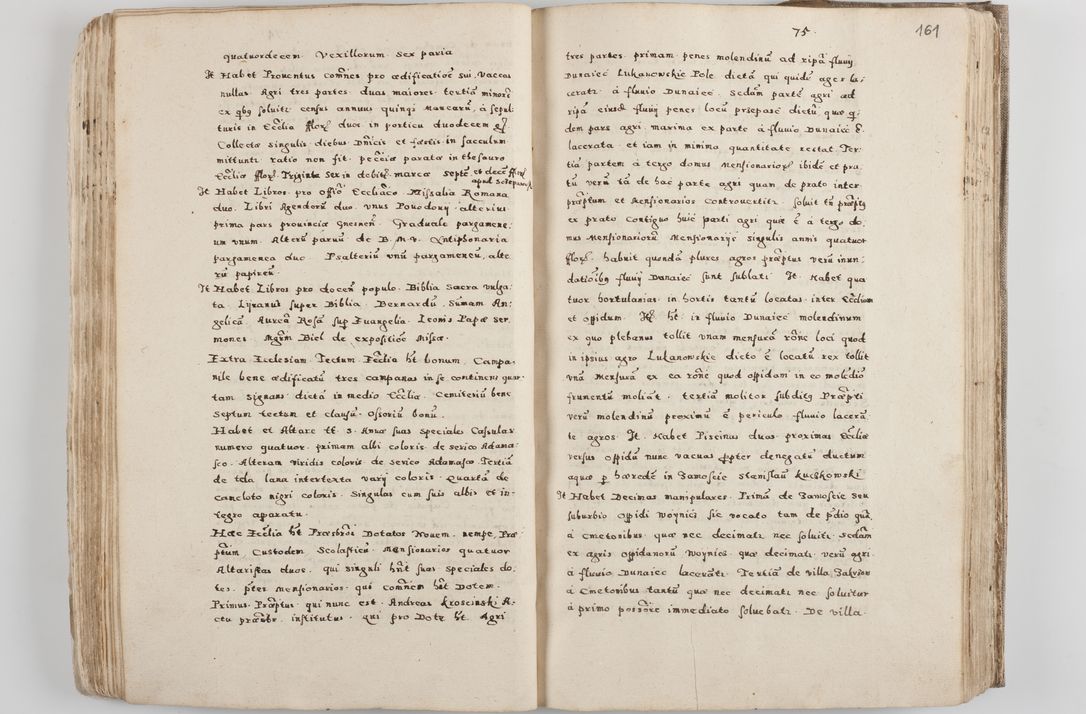 quatuordecem Vexillorum sex paria
It Habet Prouentus comnes pro ædificatioe sui. Vaccas
nullas. Agri tres partes duas maiores tertia minore
ex qbg soluiti census annuus quinqj marcaru. á sepul
turis in Ecclia fflor duos in porticu duodecem g
Collectæ singulis diebus Dnicis et festis in sacculum
mittunti ratio non fit. peccia parata in thesauro
Ecclia fflor Triginta Sex in debitis marcæ septe et dece ffl
apud
It Habet Libros pro offio Eccliaco. Missalia Romana
duo. Libri Agendoru duo. Vnus Pouodouy alterius
prima pars prouinciæ Gnesnen. Graduale pargamene,
um vnum. Alteru paruu de B. M. V. Antiphonaria
pargamenea duo. Psalteriu vnu pargameneu, alte
ru papireu.
It Habet Libros pro docen populo. Biblia Sacra vulga
ta. Lyranus super Biblia. Bernardu. Sumam An:
gelica. Aurea Rosa sup Euangelia. Leonis Papæ ser
mones. Magrm Biel de expositioe Missæ.
Extra Ecclesiam. Tectum Ecclia ht bonum, Campa-
nile bene ædificatu tres campanas in se continens quar
tam signans dicta in medio Ecclia. Cemiteriu bene
septum tectum et clausu. Osoriu bonu.
Habet et Altare tt. S. Annæ suas speciales Casulas
numero quatuor. primam albi coloris de serico Adama
sco. Alteram viridis coloris de serico Adamasco Tertia
de tela lana intertexta varij coloris. Quarta de
cancloto nigri coloris. Singulas cum suis albis et in-
tegro aparatu.
Hæc Ecclia ht Præsbros Dotatos Nouem. nempe, Præ
ptum, Custodem Scolasticu Mansionarios quatuor
Altaristas duos. qui singuli hnt suas speciales do,
tes. pter Mensionarios. qui comnem hnt Dotem.
Primus Præptus qui nunc est Andreas Kroscinski A:
ctu præsbr. institutus. qui pro Dote ht Agri
75.
161
tres partes. primam penes molendinu ad ripa fluuij
Dunaiec Lukanowskie Pole dicta qui quide ager la:
cerati á fluuio Dunaiec. Sedam parte agri ad
ripa eiusd fluuij penes locu przepasc dictu, quæ q:
dem pars agri maxima ex parte á fluuio Dunaiec e
lacerata et iam in minima quantitate restat. Ter
tia partem á tergo domus Mensionarior ibide et pra
tu veru ta de hac parte agri quam de prato inter
præptum et Mensionarios controuertiti. Soluit tn præptg
ex prato contiguo huic parti agri quæ e á tergo do,
mus Mensionarioru Mensionarijs singulis annis quatuor
fflor. habuit quonda plures agros præptus veru inun:
datioibg fluuij Dunaiec sunt sublati. It. Habet qua
tuor hortulanias. in hortis tantu locatas. inter Eccliam
et oppidum. It ht. in fluuio Dunaiec molendinum
ex quo plebanus tollit vnam mensura rone loci quod
in ipsius agro Lukanowskie dicto e locatu rex tollit
vna mensura ex ea rone quod oppidum in eo moledio
frumentu moliat. tertia molitor subditg Præpti
veru molendinu proximu e periculo fluuio lacera:
te agros. It. Habet Piscinas duas proximas Eccliæ
versus oppidu nunc vacuas ppter denegatu ductum
aquæ p hærede in Zamoscie Stanislau Kuczkowski
It Habet Decimas manipulares. Prima de Zamoscie seu
suburbio oppidi Woynicz sic vocato tam de pdio qua
á cmetonibus quæ nec decimati nec soluiti. Sedam
ex agris oppidanoru Woynicz quæ decimati. veru agri
á fluuio Dunaiec lacerati. Tertia de villa Zakrzow
á Cmetonibus tantu quæ nec decimati nec soluitur
á primo possore immediato soluebati. De villa